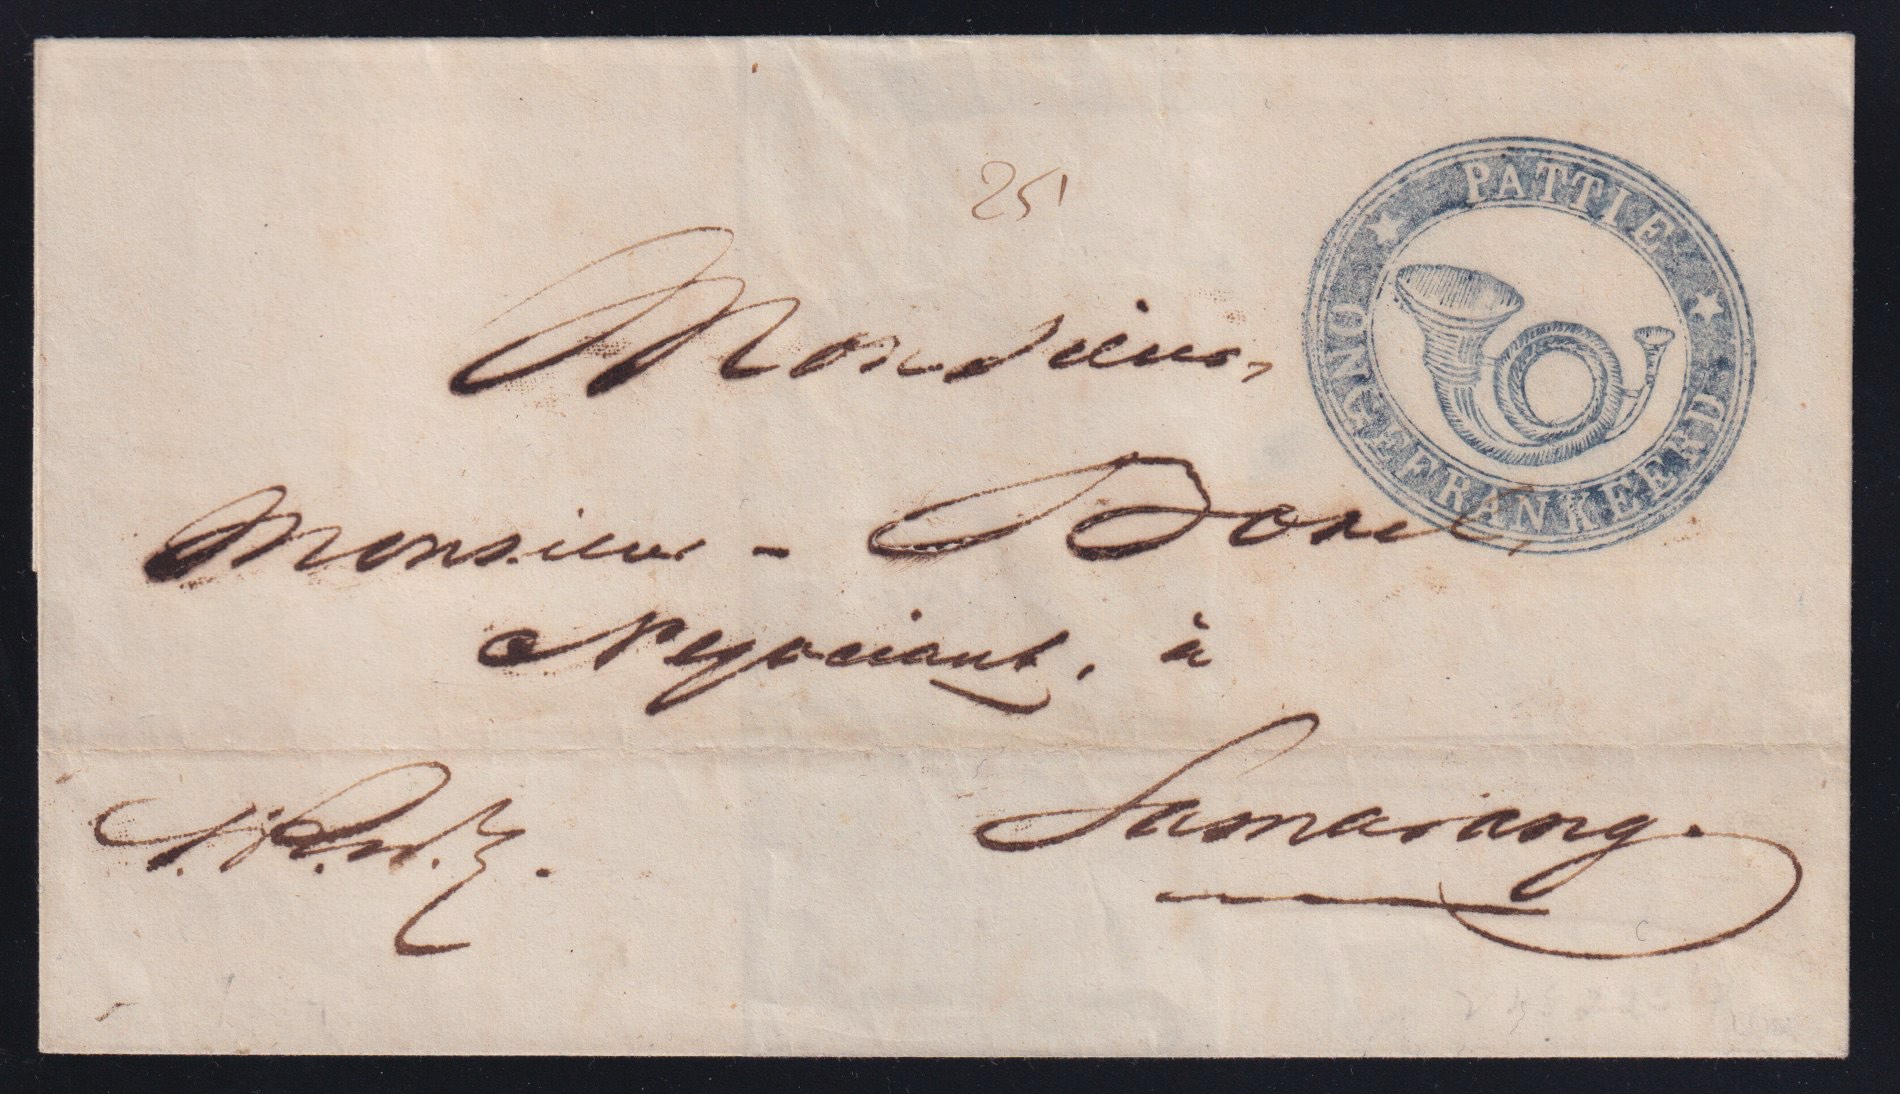 25
PATTIE
ONGEFRANKEERD
Monsieur,
Monsieur - Borel,
Negociant, à
Samarang.